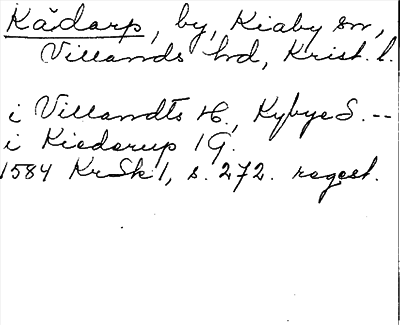 Kådarp, by, Kiaby sn,
Villands hd, Krist. l.
i Villandts H., Kybye S. --
i Kiedorup 1 G.
1584 KrSk 1, s. 272. regest.